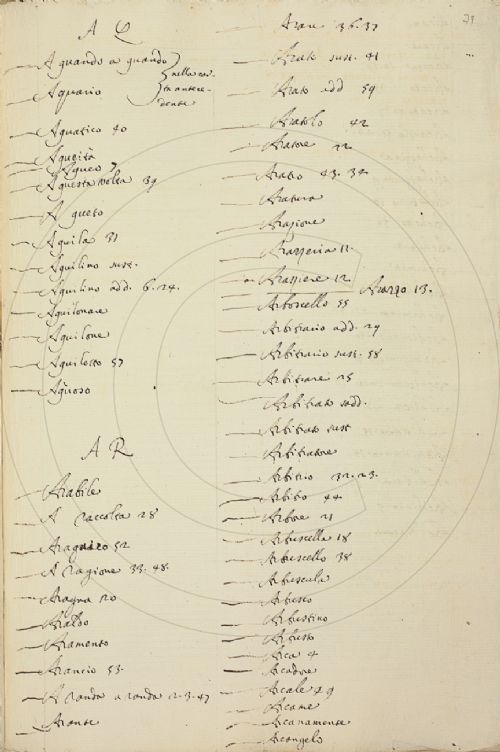 A Q
A quando a quando
Aquario
nella cor.
in antece-
dente
Aquatico 40
Aqueità
Aqueo 7
Aquesta volta 39
A questo
Aquila 31
Aquilino sust.
Aquilino add. 6. 24.
Aquilonare
Aquilone
Aquilotto 57
Aquoso
A R
Arabile
A raccolta 28
52
A ragione 33. 48.
Aragna 20
Araldo
Aramento
Arancio 53.
A randa a randa 2. 3. 47
Arante
21
Arare 36. 37
Arato sust. 41
Arato add 59
Aratolo 42
Aratore 22
Aratro 43. 34
Aratura
Arazione
Arazzeria 11.
Arazziere 12
Arazzo 13.
Arboscello 55
Arbitrario add. 29
Arbitrario sust. 58
Arbitrare 25
Arbitrato add.
Arbitrato sust
Arbitratore
Arbitrio 32. 23.
Arbitro 44
Arbore 21
Arbuscella 18
Arbuscello 38
Arbuscula
Arbusto
Arbustino
Arbusto
Arca 4
Arcadore
Arcale 49
Arcame
Arcanamente
Arcangelo